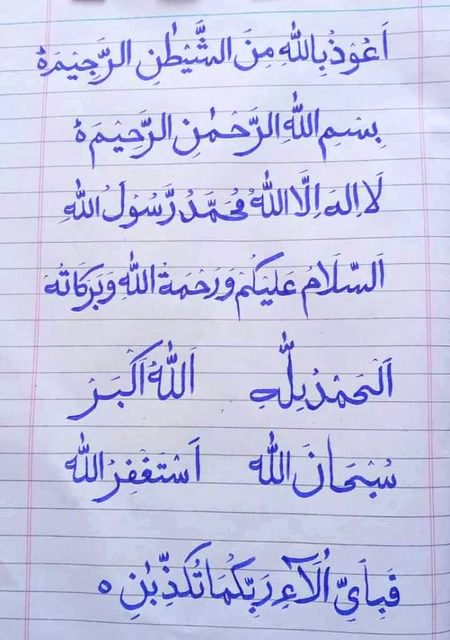 اَعُوْذُ بِاللّٰهِ مِنَ الشَّيْطٰنِ الرَّجِيْمِ ہ
بِسْمِ اللّٰهِ الرَّحْمٰنِ الرَّحِيْمِ ہ
لَا اِلٰهَ اِلَّا اللّٰهُ مُحَمَّدُ رَّسُوْلُ اللّٰهِ
اَلسَّلَامُ عَلَيْكُمْ وَرَحْمَةُ اللّٰهِ وَبَرَكَاتُهٗ
اَلْحَمْدُ لِلّٰهِ اَللّٰهُ اَكْبَرْ
سُبْحَانَ اللّٰه اَسْتَغْفِرُ اللّٰه
فَبِاَىِّ اٰلَآءِ رَبِّكُمَا تُكَذِّبٰنِ ہ